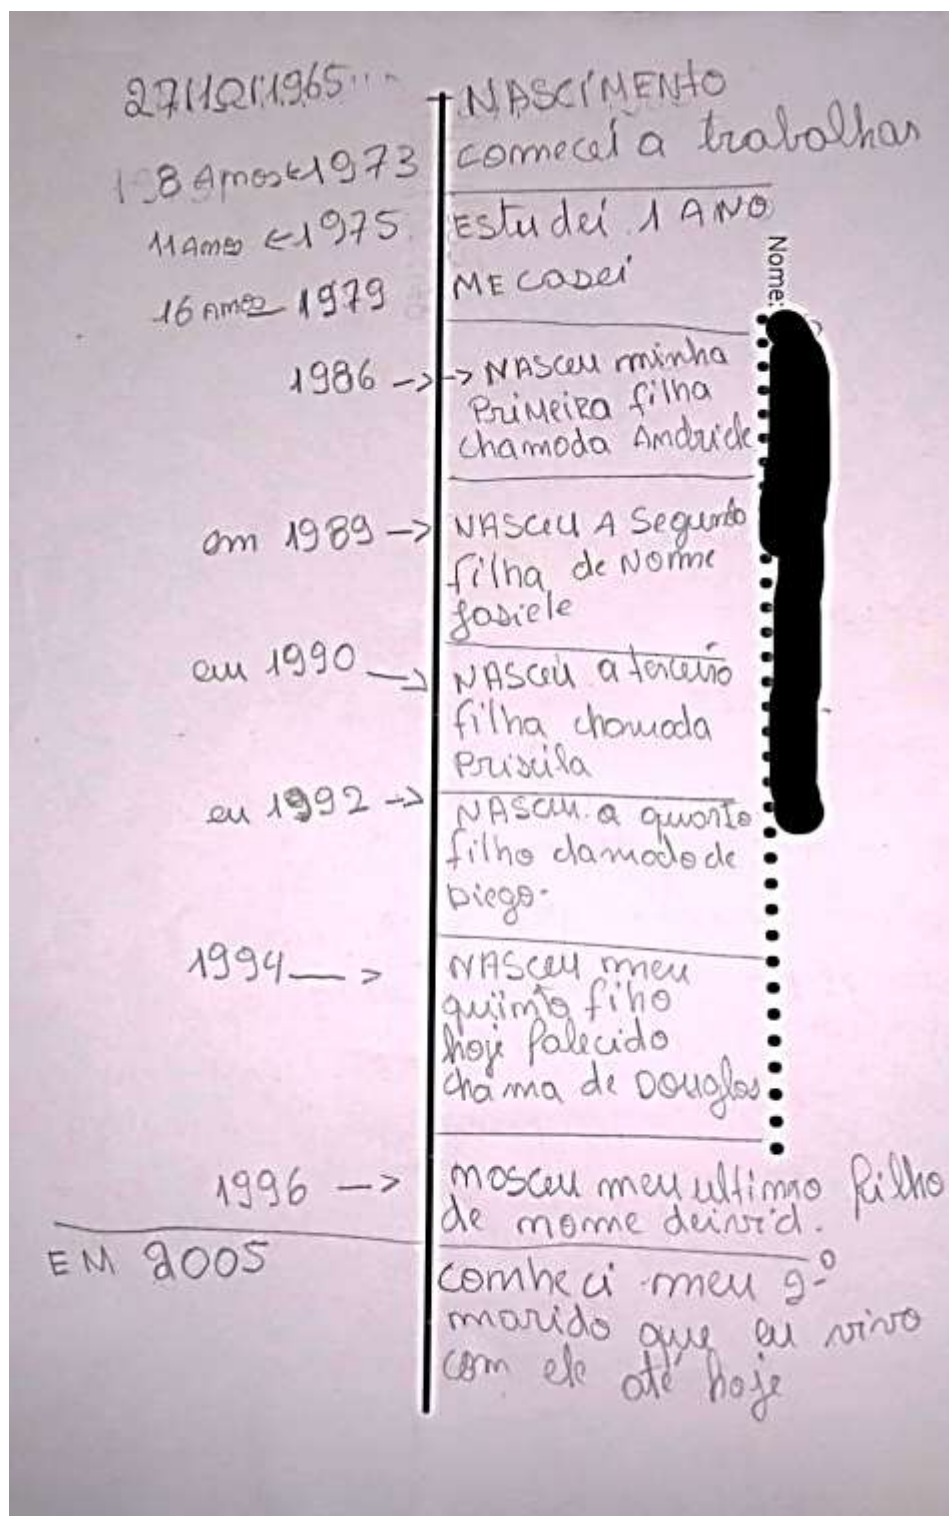 27/12/1965 NASCIMENTO
8 Amos ← 1973 comecei a trabalhar
11 Amos ← 1975 Estudei 1 ANO
16 Amos 1979 ME casei
Nome:
1986 -> -> NASCeu minha
PriMeiRa filha
chamada Andriele
em 1989 -> NASCeu A Segunda
filha de Nome
Josiele
em 1990 -> NASCeu a terceira
filha chamada
Priscila
em 1992 -> NASCeu a quarto
filho chamado de
Diego.
1994 -> NASCeu meu
quinto fiho
hoje falecido
chama de Douglas
1996 -> nasceu meu ultimo filho
de nome deivid.
EM 2005 conheci meu 2º
marido que eu vivo
com ele até hoje